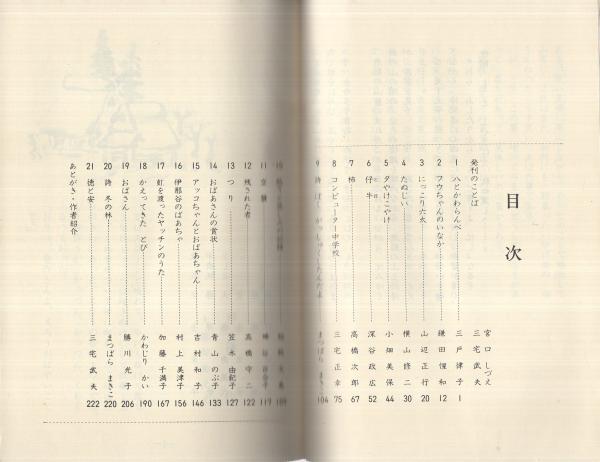 目次
発刊のことば 宮口しづえ 三宅武夫
1 ハとかわらんべ 三戸律子 1
2 フウちゃんのいなか 鎌田恒和 12
3 にっこり六太 山辺正行 20
4 たぬじい 横山修二 30
5 夕やけこやけ 小畑美保 44
6 仔牛 深谷政広 52
7 柿 高橋次郎 67
8 コンピューター中学校 三宅正幸 75
9 詩 まつばら まき 104
10 109
11 119
12 残された者 高橋守二 122
13 つり 笠木由紀子 127
14 おばあさんの賞状 青山のぶ子 133
15 アッコちゃんとおばあちゃん 吉村和子 146
16 伊那谷のばあちゃ 村上美津子 156
17 虹を渡ったヤッチンのうた 加藤千満子 167
18 かえってきた とび かわじり かい 190
19 おばさん 勝川光子 206
20 詩 冬の林 まつばら まきこ 220
21 徳と安 三宅武夫 222
あとがき・作者紹介